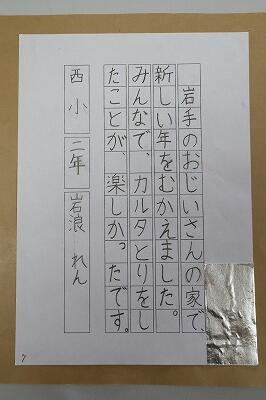 岩手のおじいさんの家で、
新しい年をむかえました。
みんなで、カルタとりをし
たことが、楽しかったです。
西小 二年 岩浪 れん